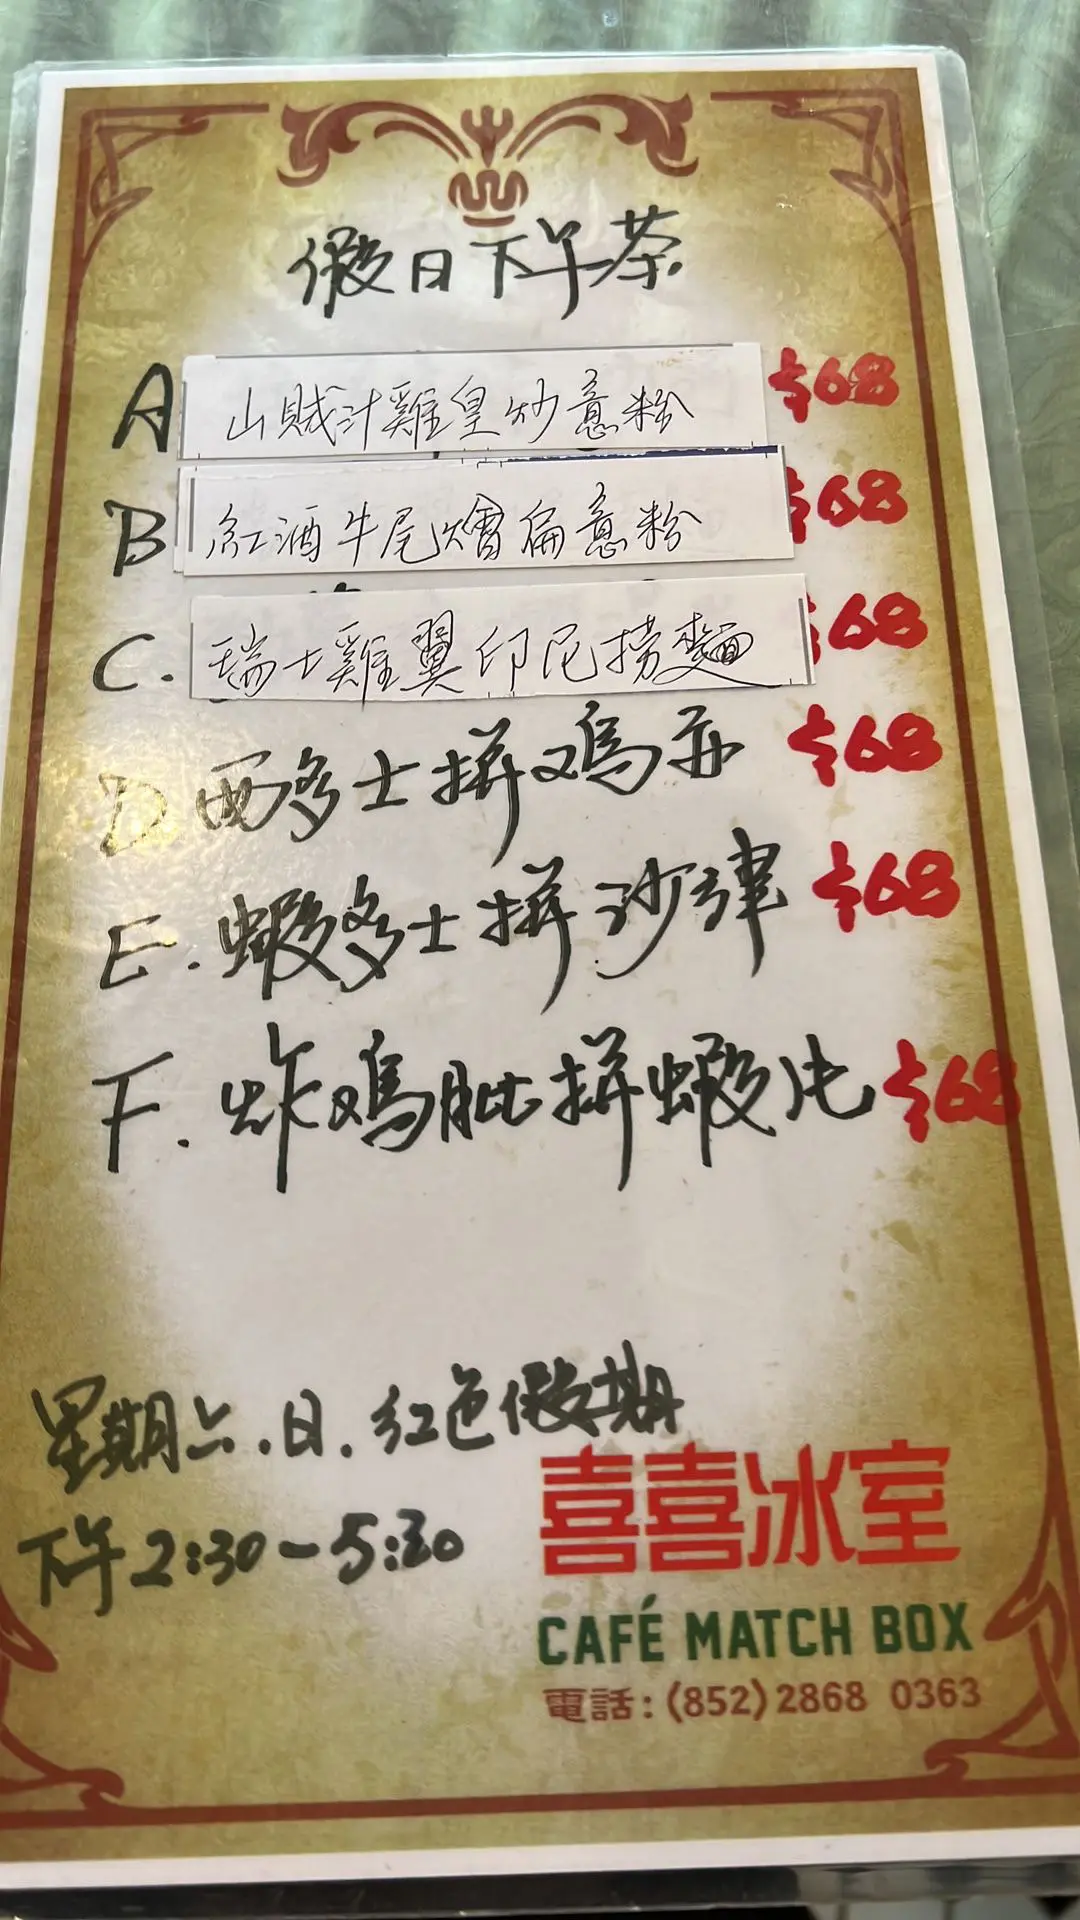 假日下午茶
A 山賊汁雞皇炒意粉 $68
B 紅酒牛尾燴扁意粉 $68
C. 瑞士雞翼印尼撈麵 $68
D. 西多士拼鸡亦 $68
E. 蝦多士拼沙律 $68
F. 炸鸡肶拼蝦片 $68
星期六.日.红色假期
下午2:30-5:30
喜喜冰室
CAFÉ MATCH BOX
電話:(852) 2868 0363